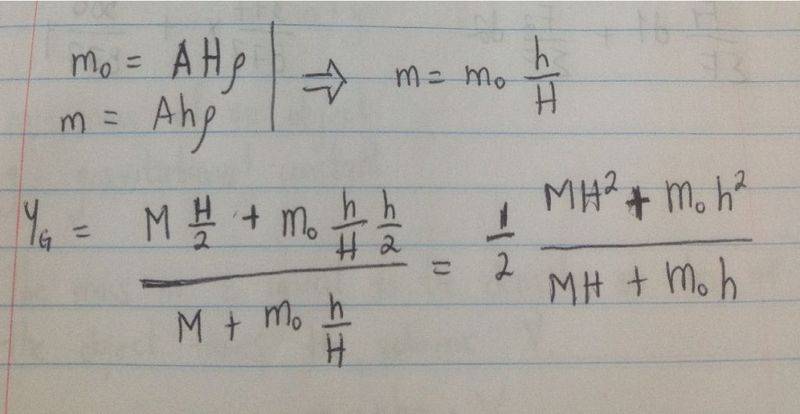 m₀ = AHρ
m = Ahρ
⇒ m = m₀ h/H
y_G = (M H/2 + m₀ h/H h/2) / (M + m₀ h/H) = 1/2 (MH² + m₀h²) / (MH + m₀h)